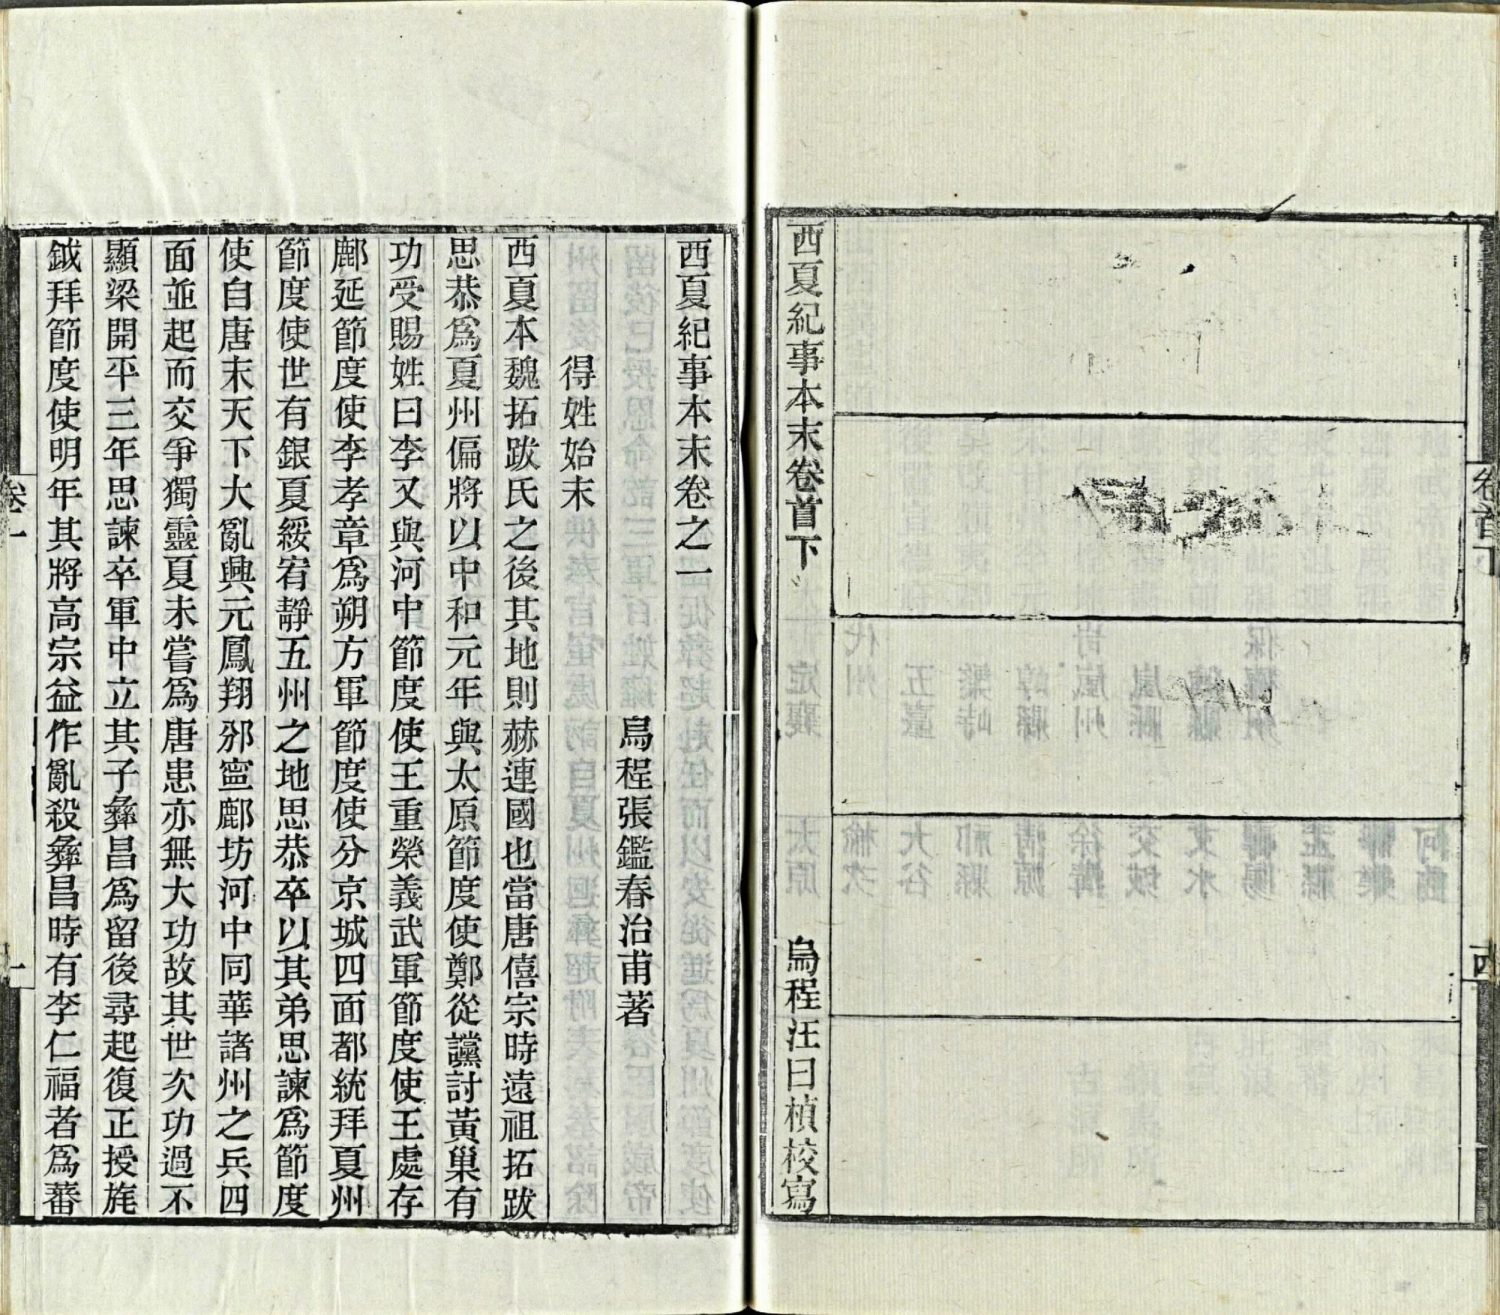 西夏紀事本末卷首下
烏程汪曰楨校寫
卷首下
西夏紀事本末卷之一
烏程張鑑春治甫著
得姓始末
西夏本魏拓跋氏之後其地則赫連國也當唐僖宗時遠祖拓跋
思恭爲夏州偏將以中和元年與太原節度使鄭從讜討黃巢有
功受賜姓曰李又與河中節度使王重榮義武軍節度使王處存
鄜延節度使李孝章爲朔方軍節度使分京城四面都統拜夏州
節度使世有銀夏綏宥靜五州之地思恭卒以其弟思諫爲節度
使自唐末天下大亂興元鳳翔邠寧鄜坊河中同華諸州之兵四
面並起而交爭獨靈夏未嘗爲唐患亦無大功故其世次功過不
顯梁開平三年思諫卒軍中立其子彝昌爲留後尋起復正授旄
鉞拜節度使明年其將高宗益作亂殺彝昌時有李仁福者爲蕃
卷一
一